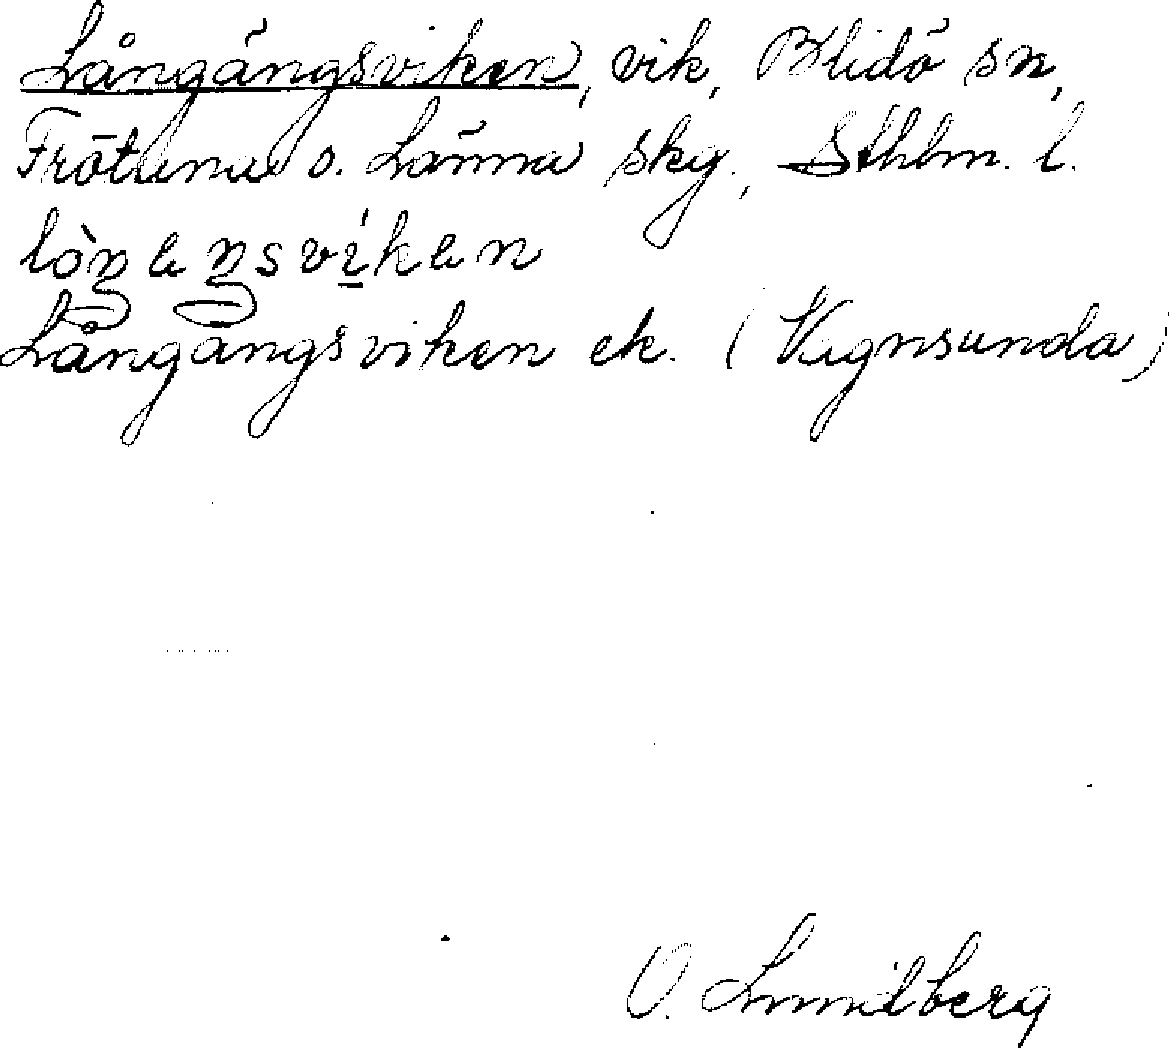 Långängsviken, vik, Blidö sn,
Frötuna o. Länna skg., Sthlm. l.
Långängsviken ek. (Vagnsunda)
O. Lundberg